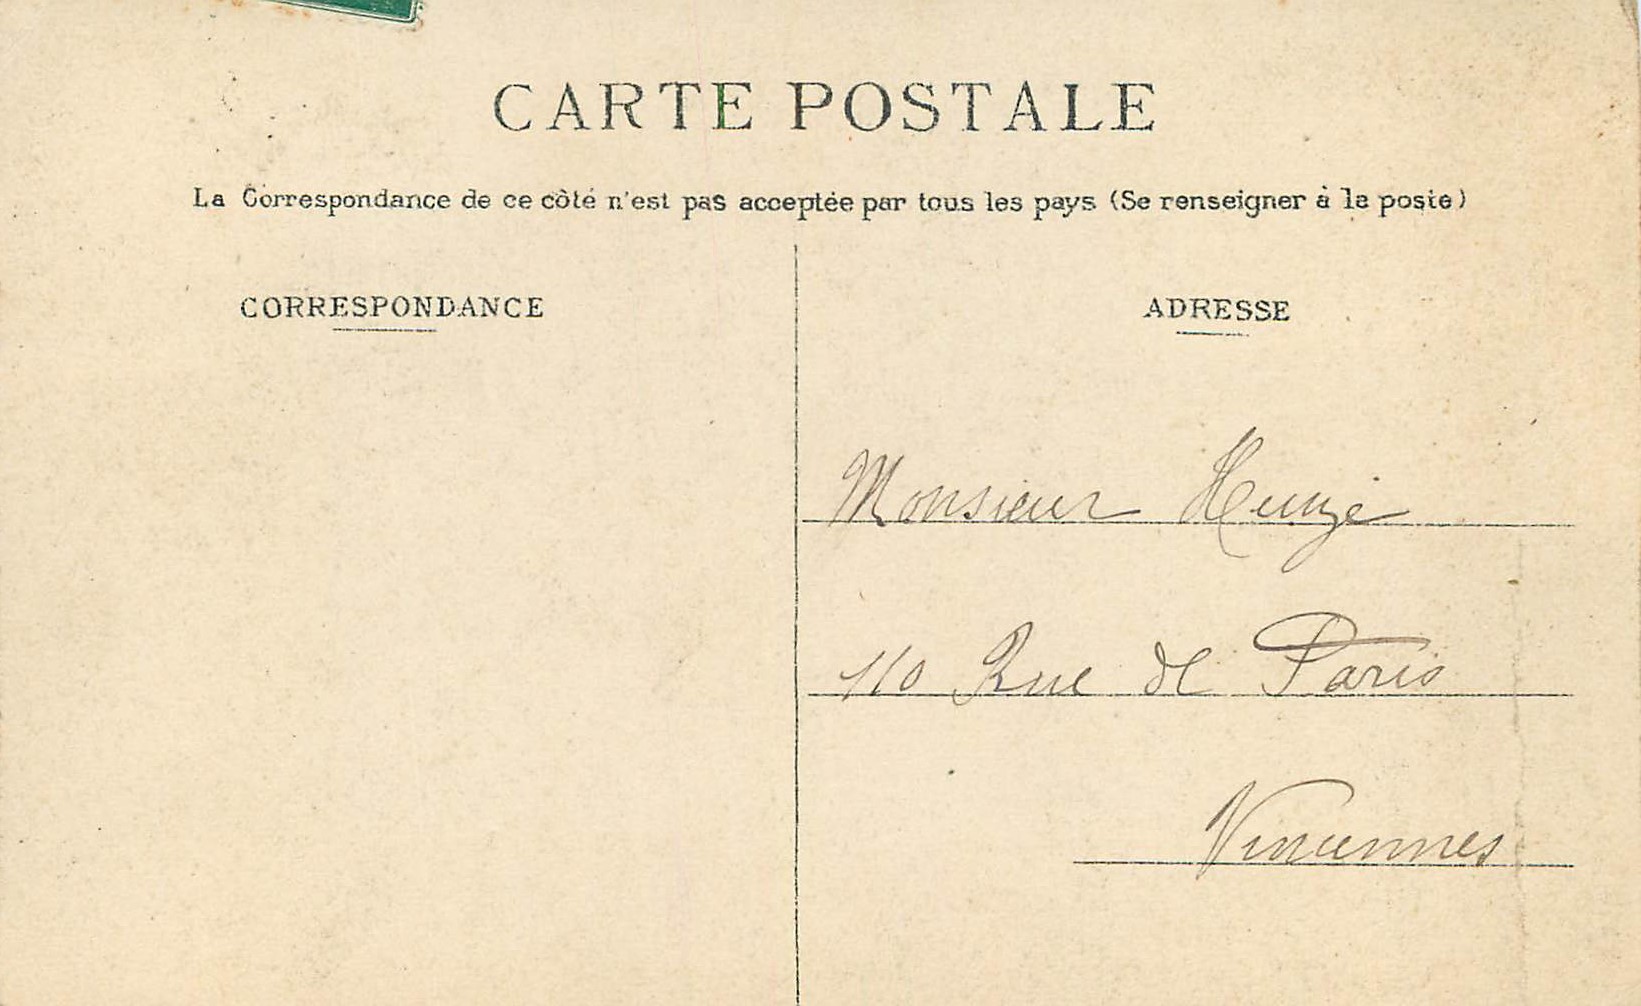 CARTE POSTALE
La Correspondance de ce côté n'est pas acceptée par tous les pays (Se renseigner à la poste)
CORRESPONDANCE
ADRESSE
Monsieur
110 Rue de Paris
Vincennes